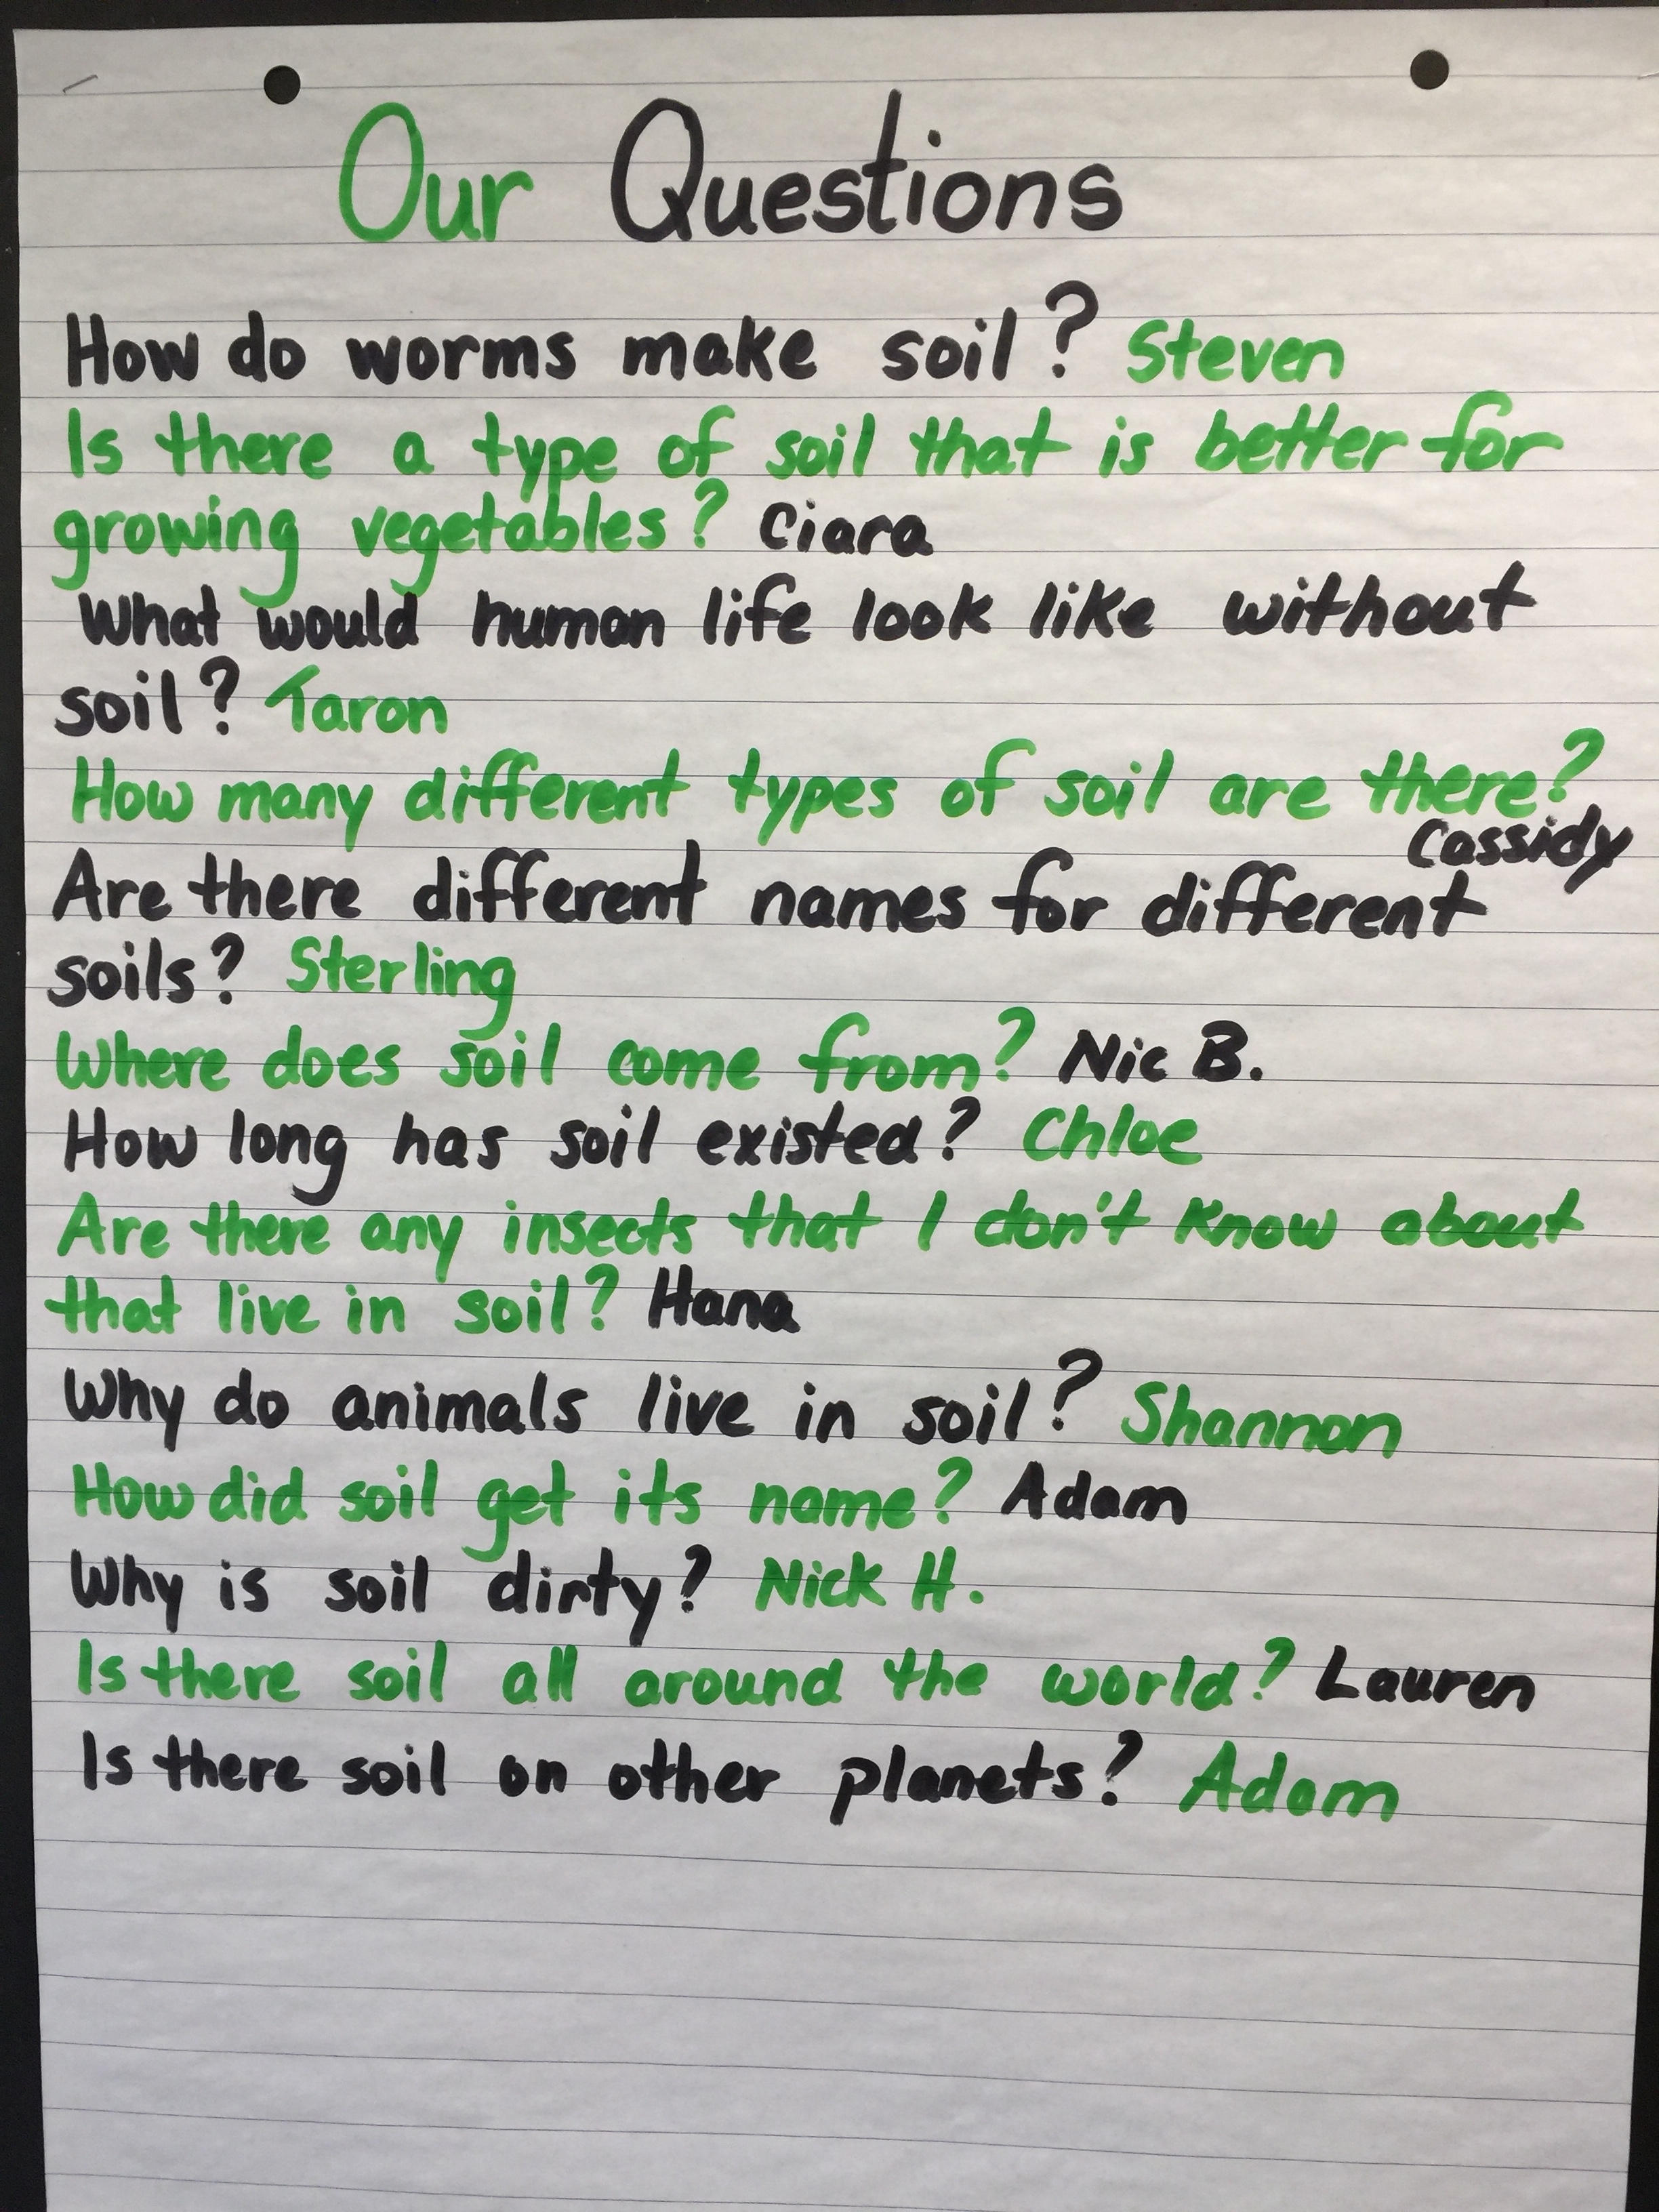 Our Questions
How do worms make soil? Steven
Is there a type of soil that is better for
growing vegetables? Ciara
What would human life look like without
soil? Taron
How many different types of soil are there?
Cassidy
Are there different names for different
soils? Sterling
Where does soil come from? Nic B.
How long has soil existed? Chloe
Are there any insects that I don't know about
that live in soil? Hana
Why do animals live in soil? Shannon
How did soil get its name? Adam
Why is soil dirty? Nick H.
Is there soil all around the world? Lauren
Is there soil on other planets? Adam